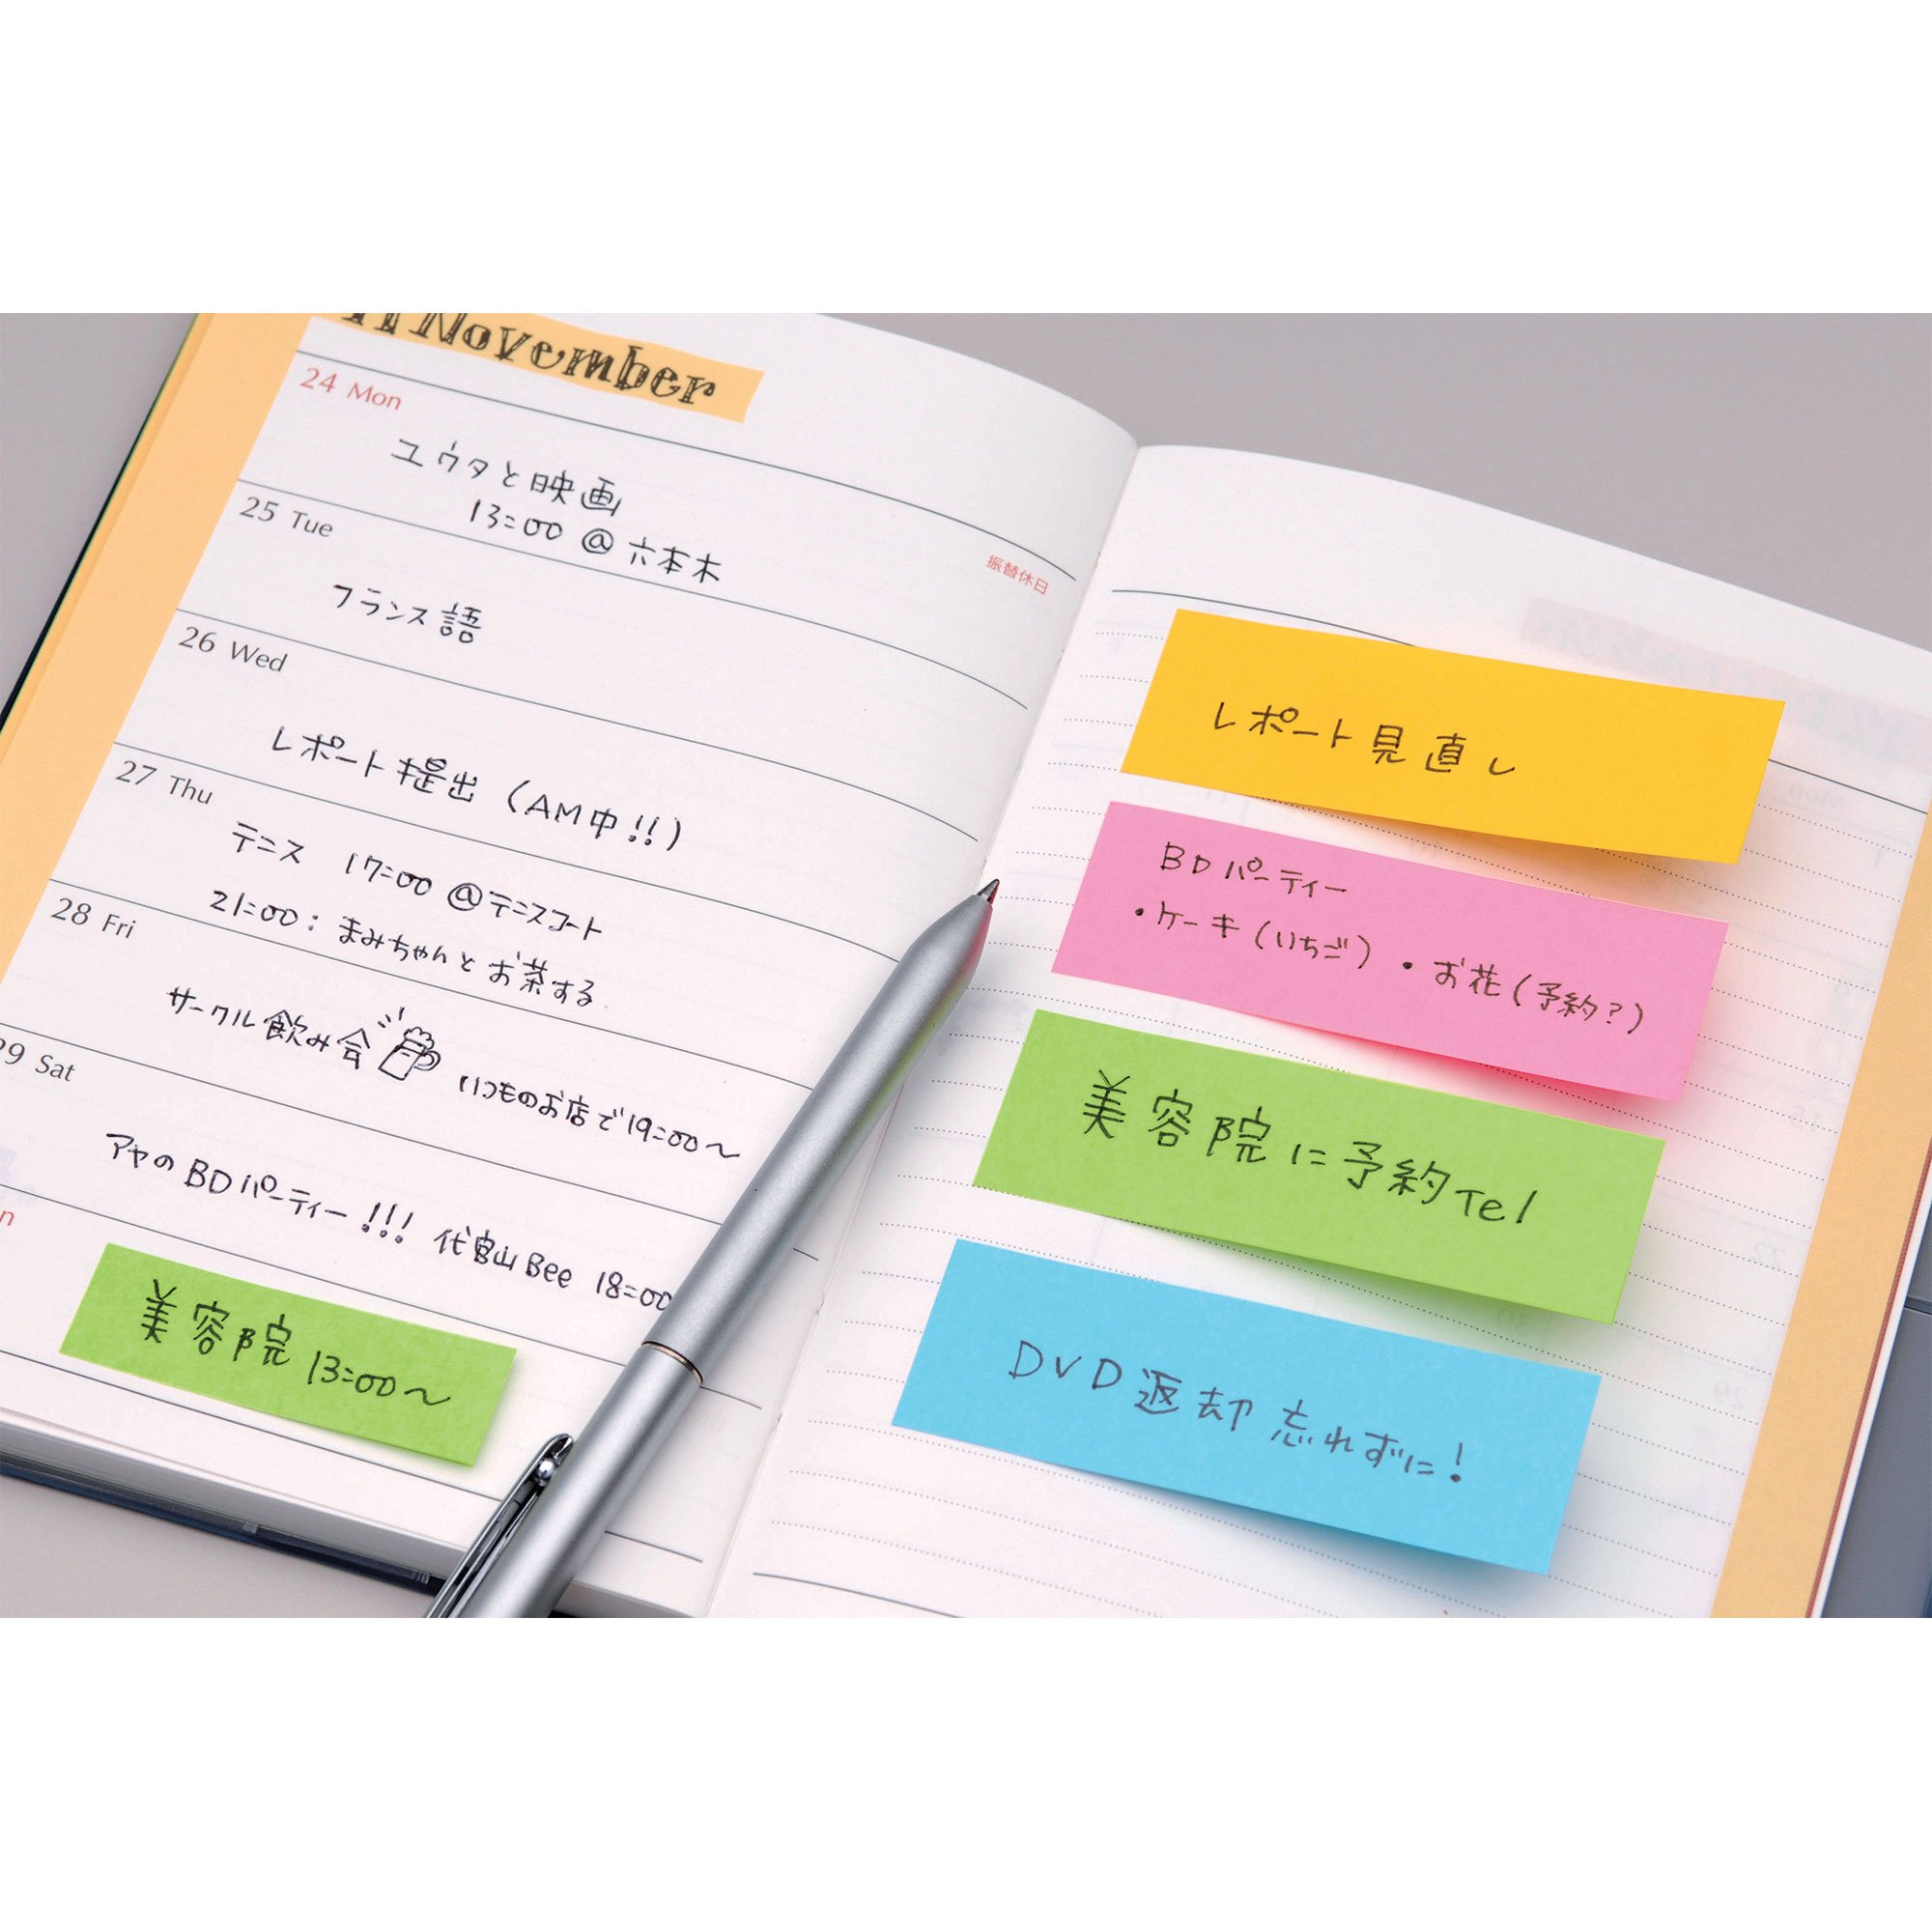 November
24 Mon
振替休日
ユウタと映画
13:00 @ 六本木
25 Tue
フランス語
26 Wed
レポート提出 (AM中!!)
27 Thu
テニス 17:00 @テニスコート
21:00: まみちゃんとお茶する
28 Fri
サークル飲み会 いつものお店で19:00〜
29 Sat
アヤのBDパーティー!!! 代官山Bee 18:00
美容院 13:00〜
レポート見直し
BDパーティー
・ケーキ(いちご) ・お花(予約?)
美容院に予約Tel
DVD返却 忘れずに!